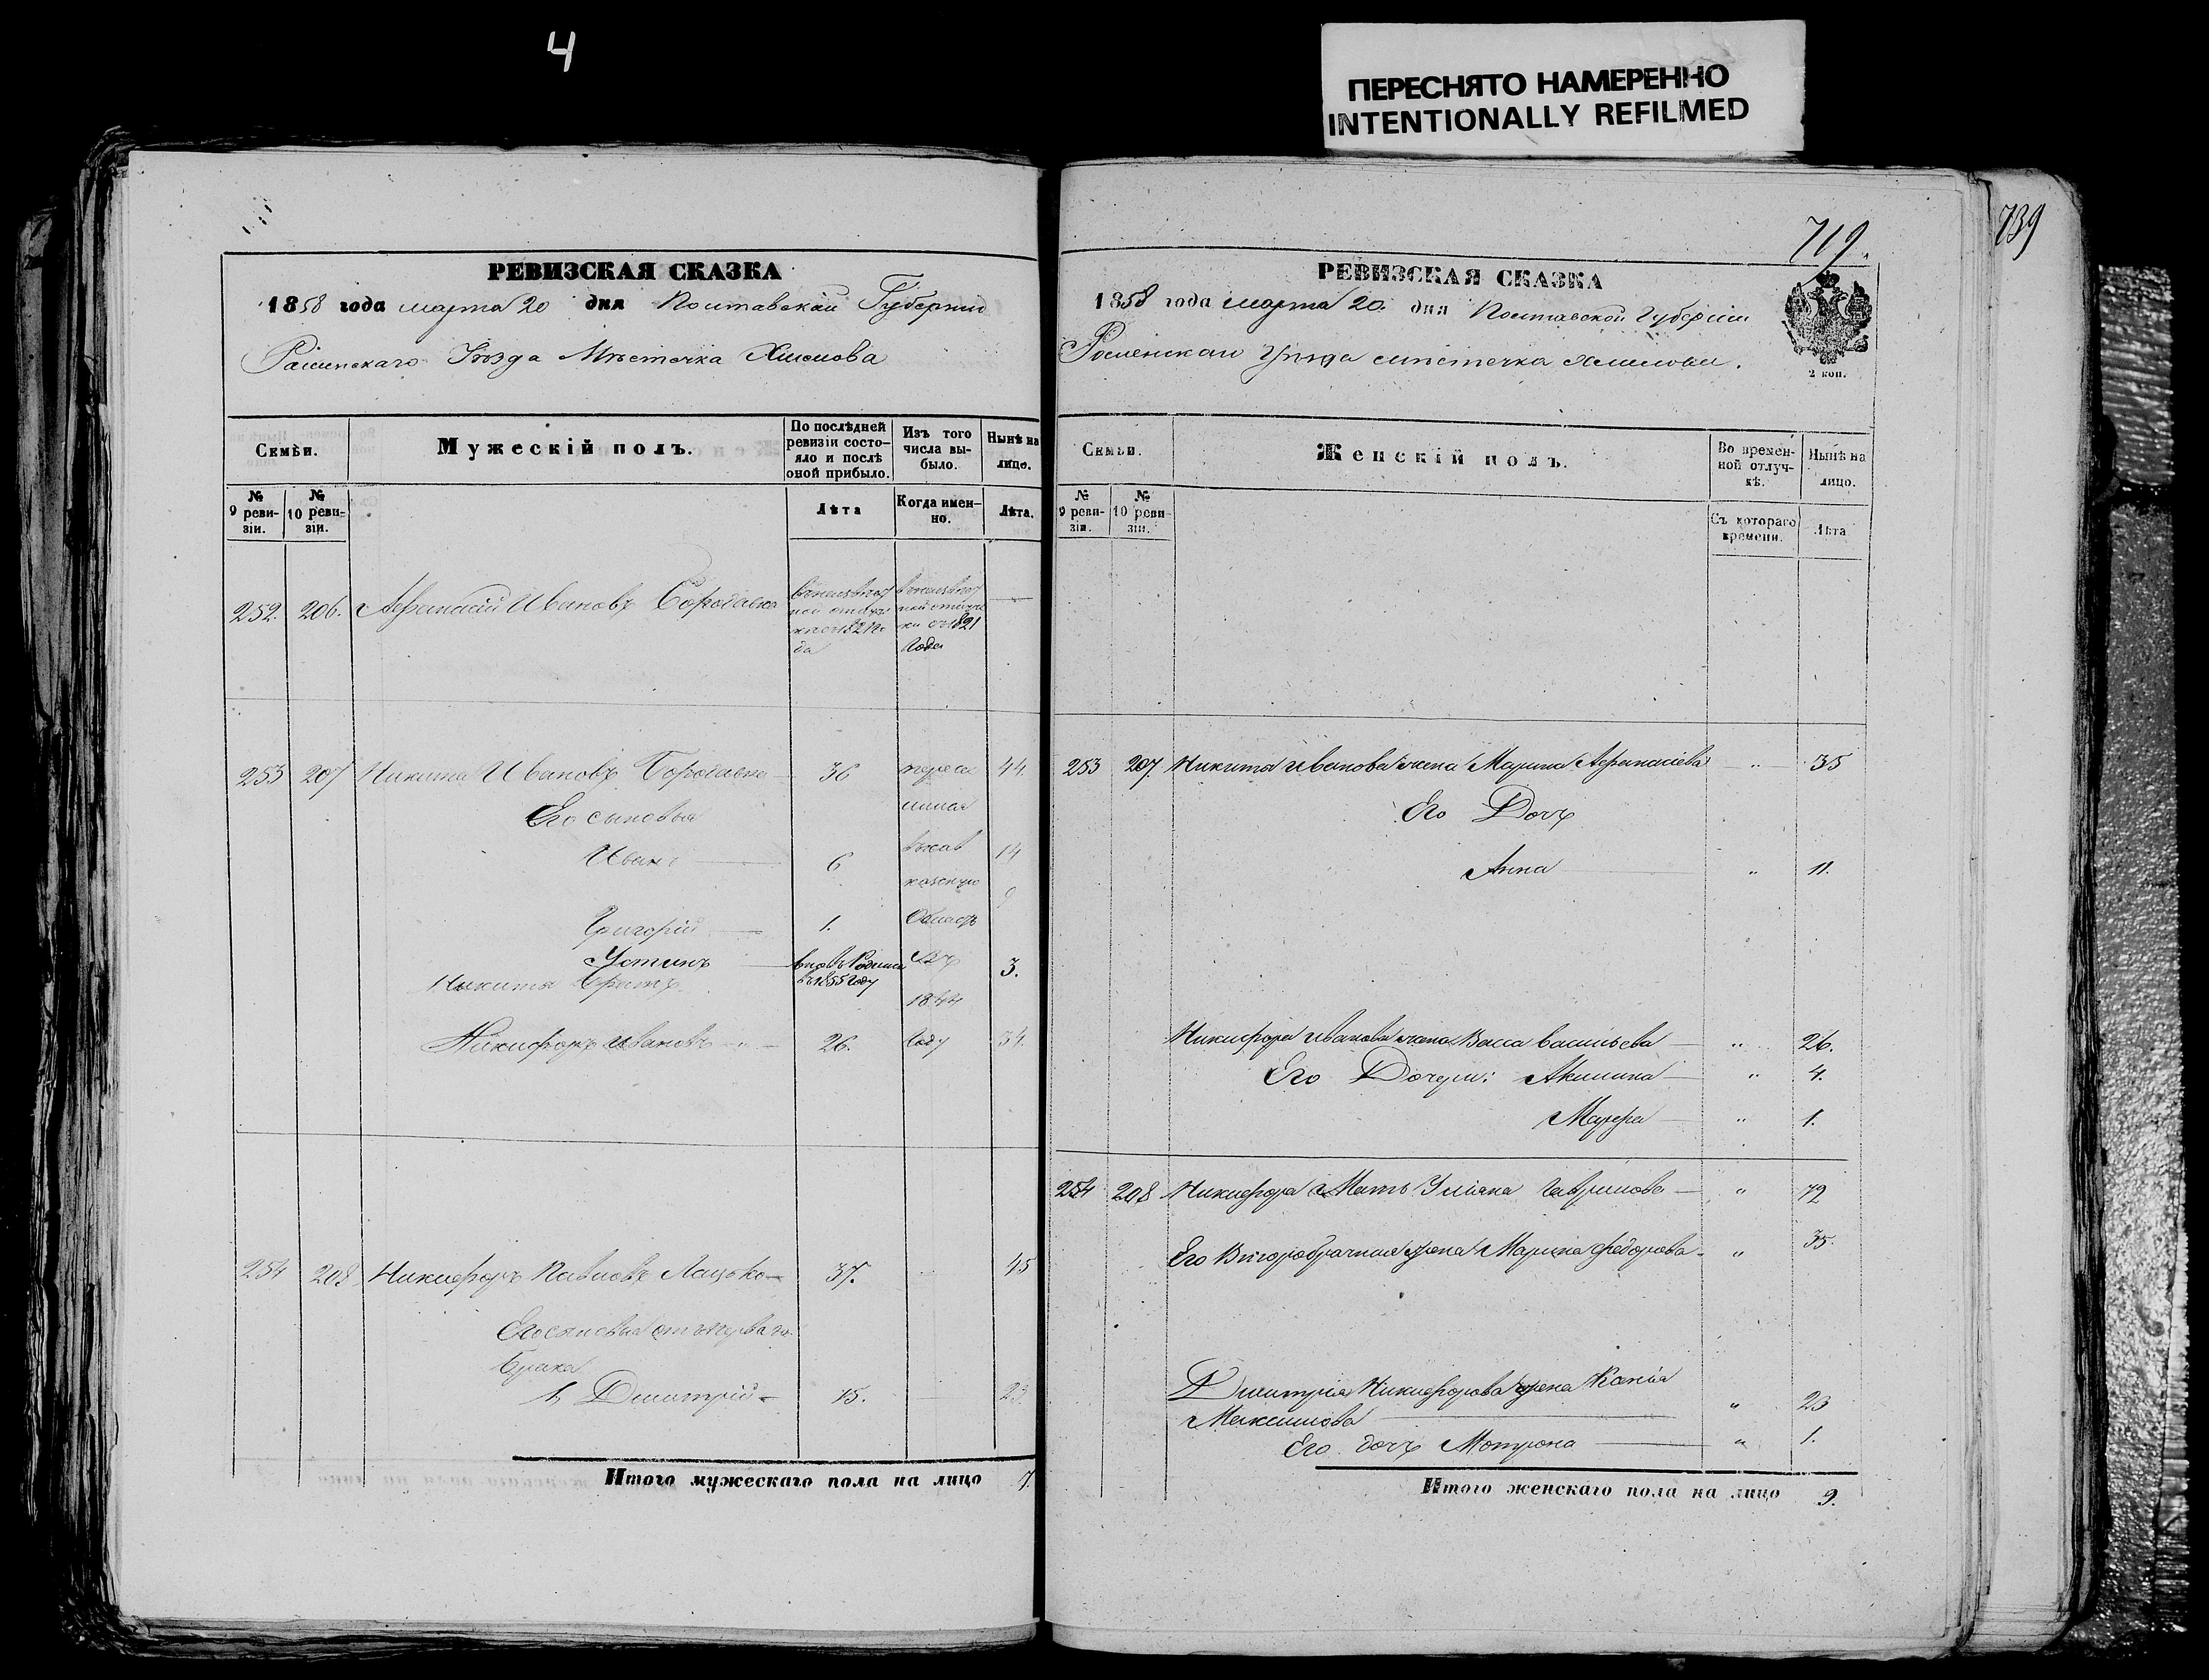 4
ПЕРЕСНЯТО НАМЕРЕННО
INTENTIONALLY REFILMED
739
РЕВИЗСКАЯ СКАЗКА
1858 года марта 20 дня Полтавской Губернии
Роменскаго Уѣзда Мѣстечка Хмелова
Семьи.
Мужескій полъ.
По послѣдней ревизіи состояло и послѣ оной прибыло.
Изъ того числа выбыло.
Нынѣ на лицо.
№ 9 ревизіи.
№ 10 ревизіи.
Лѣта
Когда именно.
Лѣта.
252. 206. Афанасій Ивановъ Бородавка
въ неизвѣстной отлучкѣ съ 1821 года
въ неизвѣстной отлучки съ 1821 года
253 207 Никита Ивановъ Бородавка 36 44.
Его сыновья
Иванъ 6 14
Григорій 1. 9
Устинъ вновь родился въ 1855 году 3.
Никиты братъ
Никифоръ Ивановъ 26. 34.
Область
въ
1844
году
254 208 Никифоръ Павловъ Лацько 37. 45
Его сыновья отъ перваго
брака
1, Дмитрій 15. 23
Итого мужескаго пола на лицо 7.
719.
РЕВИЗСКАЯ СКАЗКА
1858 года марта 20. дня Полтавской Губерніи
Роменскаго Уѣзда мѣстечка Хмелова.
2 коп.
Семьи.
Женскій полъ.
Во временной отлучкѣ.
Нынѣ на лицо.
№ 9 ревизіи.
№ 10 ревизіи.
Съ котораго времени.
Лѣта
253 207. Никиты Иванова жена Марина Афанасіева " 35
Его Дочь
Анна " 11.
Никифора Иванова жена Васса Васильева " 26.
Его Дочери: Акилина " 4.
Марфа " 1.
254 208 Никифора Мать Уліяна Гаврилова " 72
Его Второбрачная жена Марина Федорова " 35.
Дмитрія Никифорова жена Ксенія
Максимова " 23
Его дочь Мотрона " 1.
Итого женскаго пола на лицо 9.